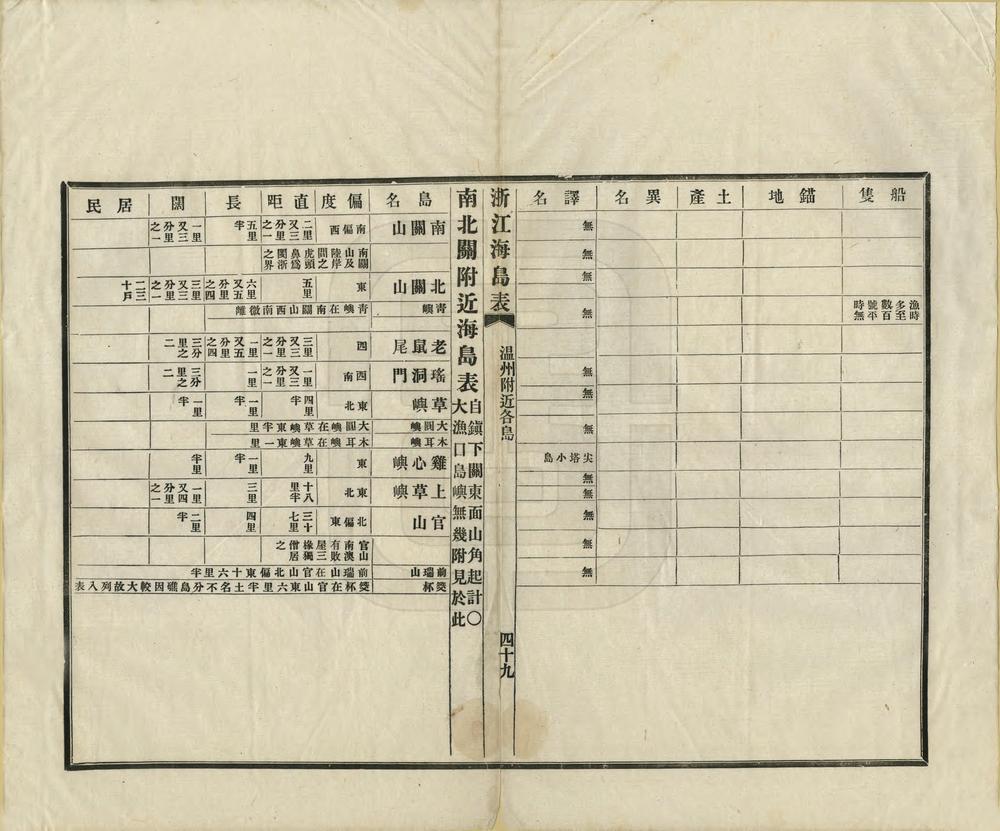 船隻 錨地 土產 異名 譯名
無
無
無
漁時多至數百號平時無 無
無
無
無
尖塔小島
無
無
無
無
無
浙江海島表 溫州附近各島 四十九
南北關附近海島表 自鎮下關東面山角起計〇大漁口島嶼無幾附見於此
島名 偏度 直距 長 闊 居民
南關山 南偏西 二里又三分里之一 五里半 一里又三分里之一
南關山及陸岸間之虎頭鼻爲閩浙之界
北關山 東 五里 六里又五分里之四 三里又三分里之一 二三十戶
青嶼 青嶼在南關山西南微離
老鼠尾 西 三里又三分里之一 一里又五分里之四 三分里之二
瑤洞門 西南 一里又三分里之一 一里 三分里之二
草嶼 東北 四里半 一里半 一里半
大圓嶼 大圓嶼在草嶼東半里
木耳嶼 木耳嶼在草嶼東一里
雞心嶼 東 九里 一里半 半里
上草嶼 東北 十八里半 三里 一里又四分里之一
官山 北偏東 三十七里 四里 二里半
官山南澳有敗屋三椽獨僧居之
前瑞山 前瑞山在官山北偏東十六里半
筊杯 筊杯在官山東六里半土名不分島礁因較大故列入表